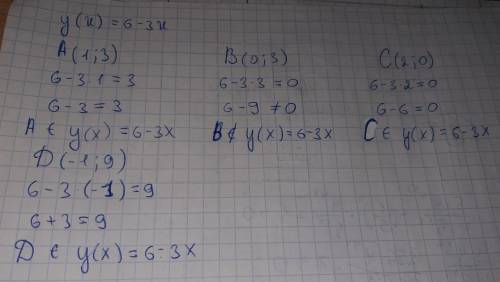 y(x) = 6-3x
A(1;3)
6-3·1=3
6-3=3
A ∈ y(x)=6-3x
B(0;3)
6-3·3=0
6-9≠0
B∉ y(x)=6-3x
C(2;0)
6-3·2=0
6-6=0
C∈ y(x)=6-3x
D(-1;9)
6-3·(-1)=9
6+3=9
D ∈ y(x)=6-3x